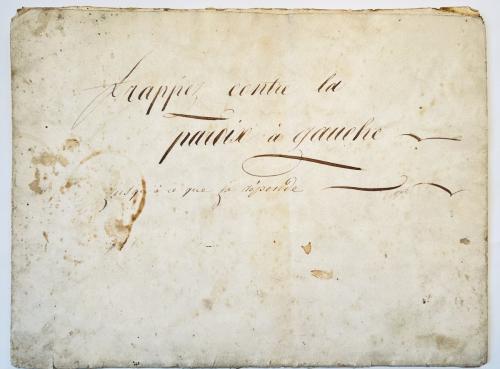 frappez contre la
paroie à gauche
jusqu'à ce que ça réponde